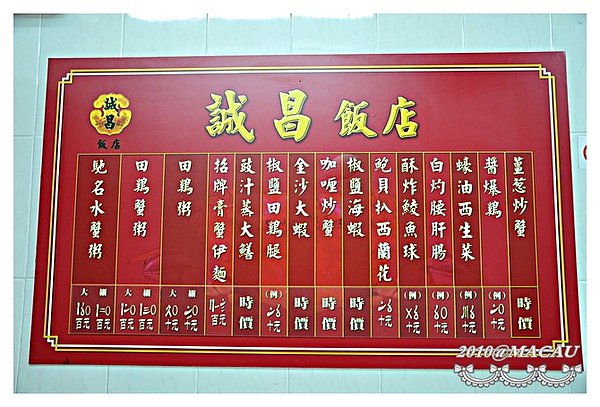 誠昌飯店
誠昌
飯店
薑葱炒蟹
時價
醬爆鷄
(例)
十元
蠔油西生菜
(例)
十元
白灼腰肝腸
(例)
60
十元
酥炸鯪魚球
(例)
十元
鮑貝扒西蘭花
(例)
十元
椒鹽海蝦
時價
咖喱炒蟹
時價
金沙大蝦
時價
椒鹽田鷄腿
(例)
十元
豉汁蒸大鱔
時價
招牌膏蟹伊麵
百元
田鷄粥
大 細
十元 十元
田鷄蟹粥
大 細
百元 百元
馳名水蟹粥
大 細
百元 百元
2010@MACAU